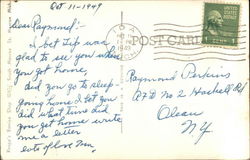 Oct. 11-1949
Dear Raymond:-
I bet Zip was
glad to see you when
you got home,
did you go to sleep
going home I bet you
did what time did
you get home write
me a letter
lots of love Mm
POST CARD
Raymond Perkins
R.F.D No 2 Haskell Rd
Olean
N.Y.